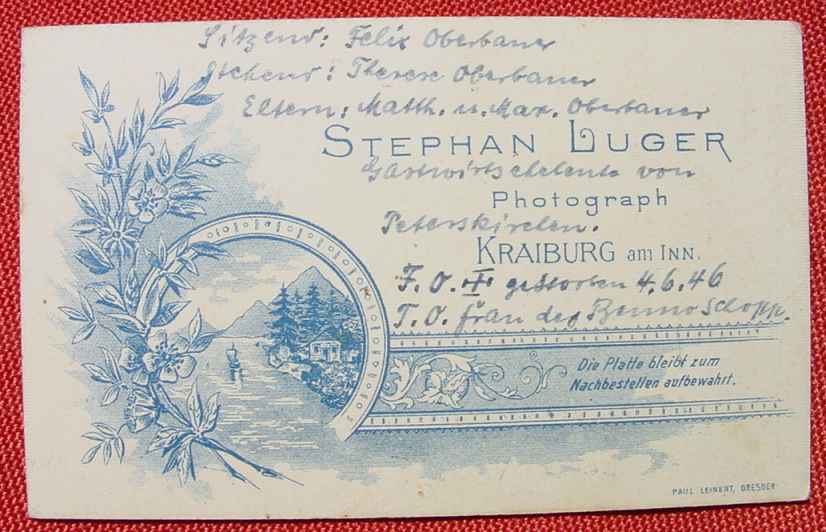 Sitzend: Felix Oberbauer
Stehend: Therese Oberbauer
Eltern: Matth. u. Max. Oberbauer
STEPHAN LUGER
Gastwirtseheleute von
Photograph
Peterskirchen.
KRAIBURG am INN.
F. O. ✝ gestorben 4.6.46
T. O. Frau des Benno Schopp.
Die Platte bleibt zum
Nachbestellen aufbewahrt.
PAUL LEINERT, DRESDEN